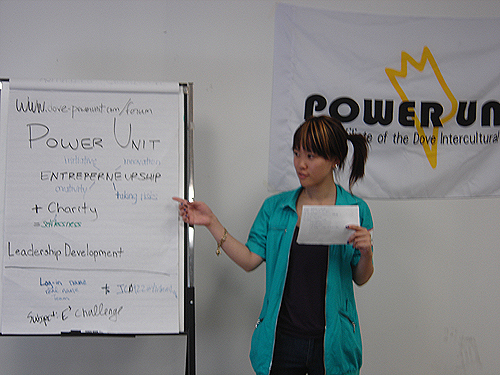 www.dove-powerunit.com/forum
POWER UNIT
initiative innovation
ENTREPERNEURSHIP
creativity taking risks
+ Charity
= selflessness
Leadership Development
Log-in name
real name
Subject: E' Challenge
POWER UN
iliate of the Dove Intercultural